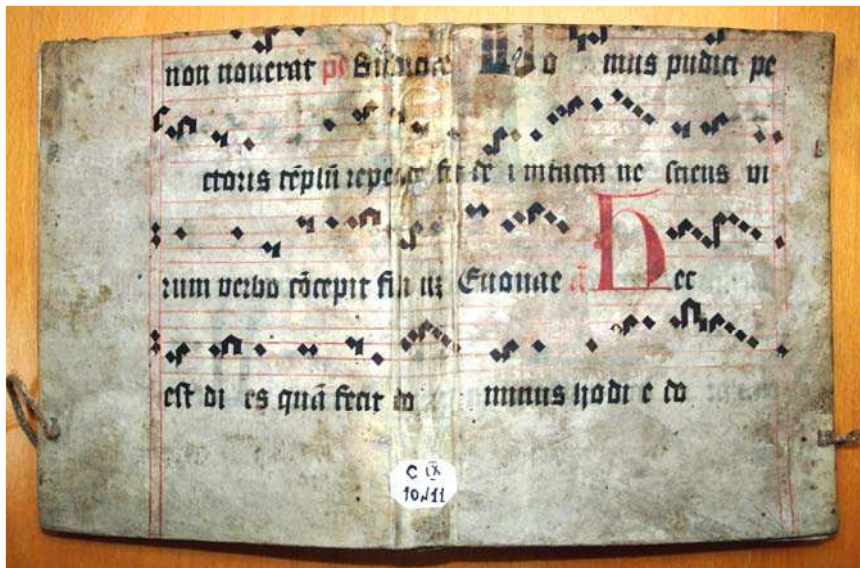 non nouerat ps Domus pudici pe
ctoris tēplū repente fit dei intacta ne sciens vi
rum verbo cōcepit filiū Euouae ā Hec
est di es quā fecit do minus hodi e do
C IX
10/11